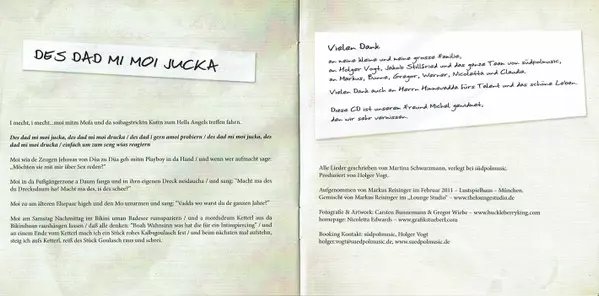 DES DAD MI MOI JUCKA
I mecht, i mecht...moi mitm Mofa und da soibagstrickten Kuttn zum Hella Angels treffen fahrn.
Des dad mi moi jucka, des dad mi moi drucka / des dad i gern amoi probiern / des dad mi moi jucka, des
dad mi moi drucka / einfach um zum seng wias reagiern
Moi wia de Zeugen Jehovas von Dia zu Dia geh mitm Playboy in da Hand / und wenn wer aufmacht sagn:
„Möchten sie mit mir über Sex reden?“
Moi in da Fußgängerzone a Daum fanga und in ihrn eigenen Dreck neidaucha / und sang: "Macht ma des
du Drecksdaum ha! Macht ma des, is des schee?"
Moi zu am älteren Ehepaar higeh und den Mo umarmen und sang: "Vadda wo warst du de ganzen Jahre?"
Mot am Samstag Nachmittag im Bikini uman Badesee rumspaziern / und a mordsdrum Ketterl aus da
Bikinihosn raushängen lassen / daß alle denken: "Boah Wahnsinn wos hat die für ein Intimpiercing" / und
an einem Ende vom Ketterl mach ich ein Stück rohes Kalbsgoulasch fest / und beim nächsten mal aufstehn,
steig ich aufs Ketterl, reiß des Stück Goulasch raus und schrei.
Vielen Dank
an meine kleine und meine grosse Familie,
an Holger Vogt, Jakob Stillfried und das ganze Team vom südpolmusic,
an Markus, Bunne, Gregor, Werner, Nicoletta und Claudia.
Vielen Dank auch an Herrn Hinnavadda fürs Talent und das schöne Leben.
Diese CD ist unserem Freund Michel gewidmet,
den wir sehr vermissen.
Alle Lieder geschrieben von Martina Schwarzmann, verlegt bei südpolmusic.
Produziert von Holger Vogt.
Aufgenommen von Markus Reisinger im Februar 2011 – Lustspielhaus – München.
Gemischt von Markus Reisinger im „Lounge Studio“ – www.theloungestudio.de
Fotografie & Artwork: Carsten Bunnemann & Gregor Wiebe – www.huckleberryking.com
homepage: Nicoletta Edwards – www.grafikstueberl.com
Booking Kontakt: südpolmusic, Holger Vogt
holger.vogt@suedpolmusic.de, www.suedpolmusic.de